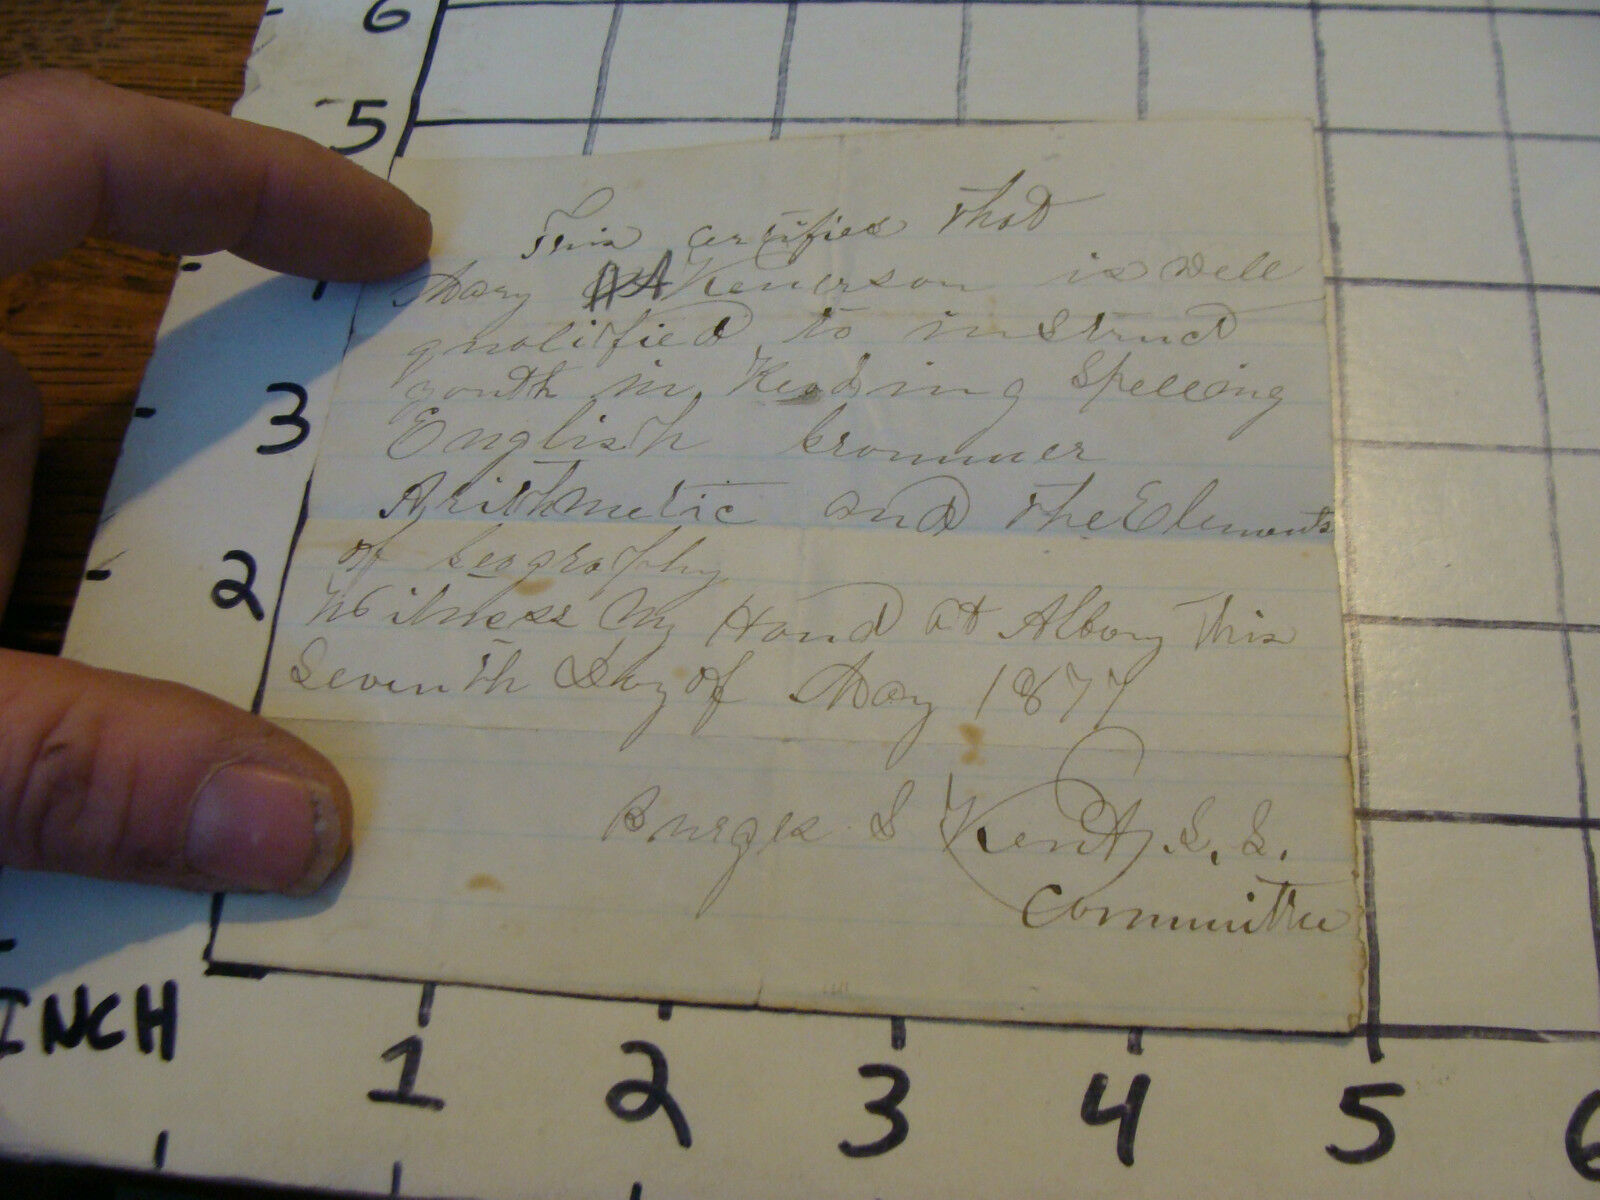 6
5
This certifies that
Mary A Kenerson is well
qualified to instruct
youth in Reading Spelling
3
English Grammer
Arithmetic and the Elements
2
of Geography
Witness My Hand at Albany this
Seventh Day of May 1877
Burges S Kent S. S.
Committee
INCH
1 2 3 4 5 6